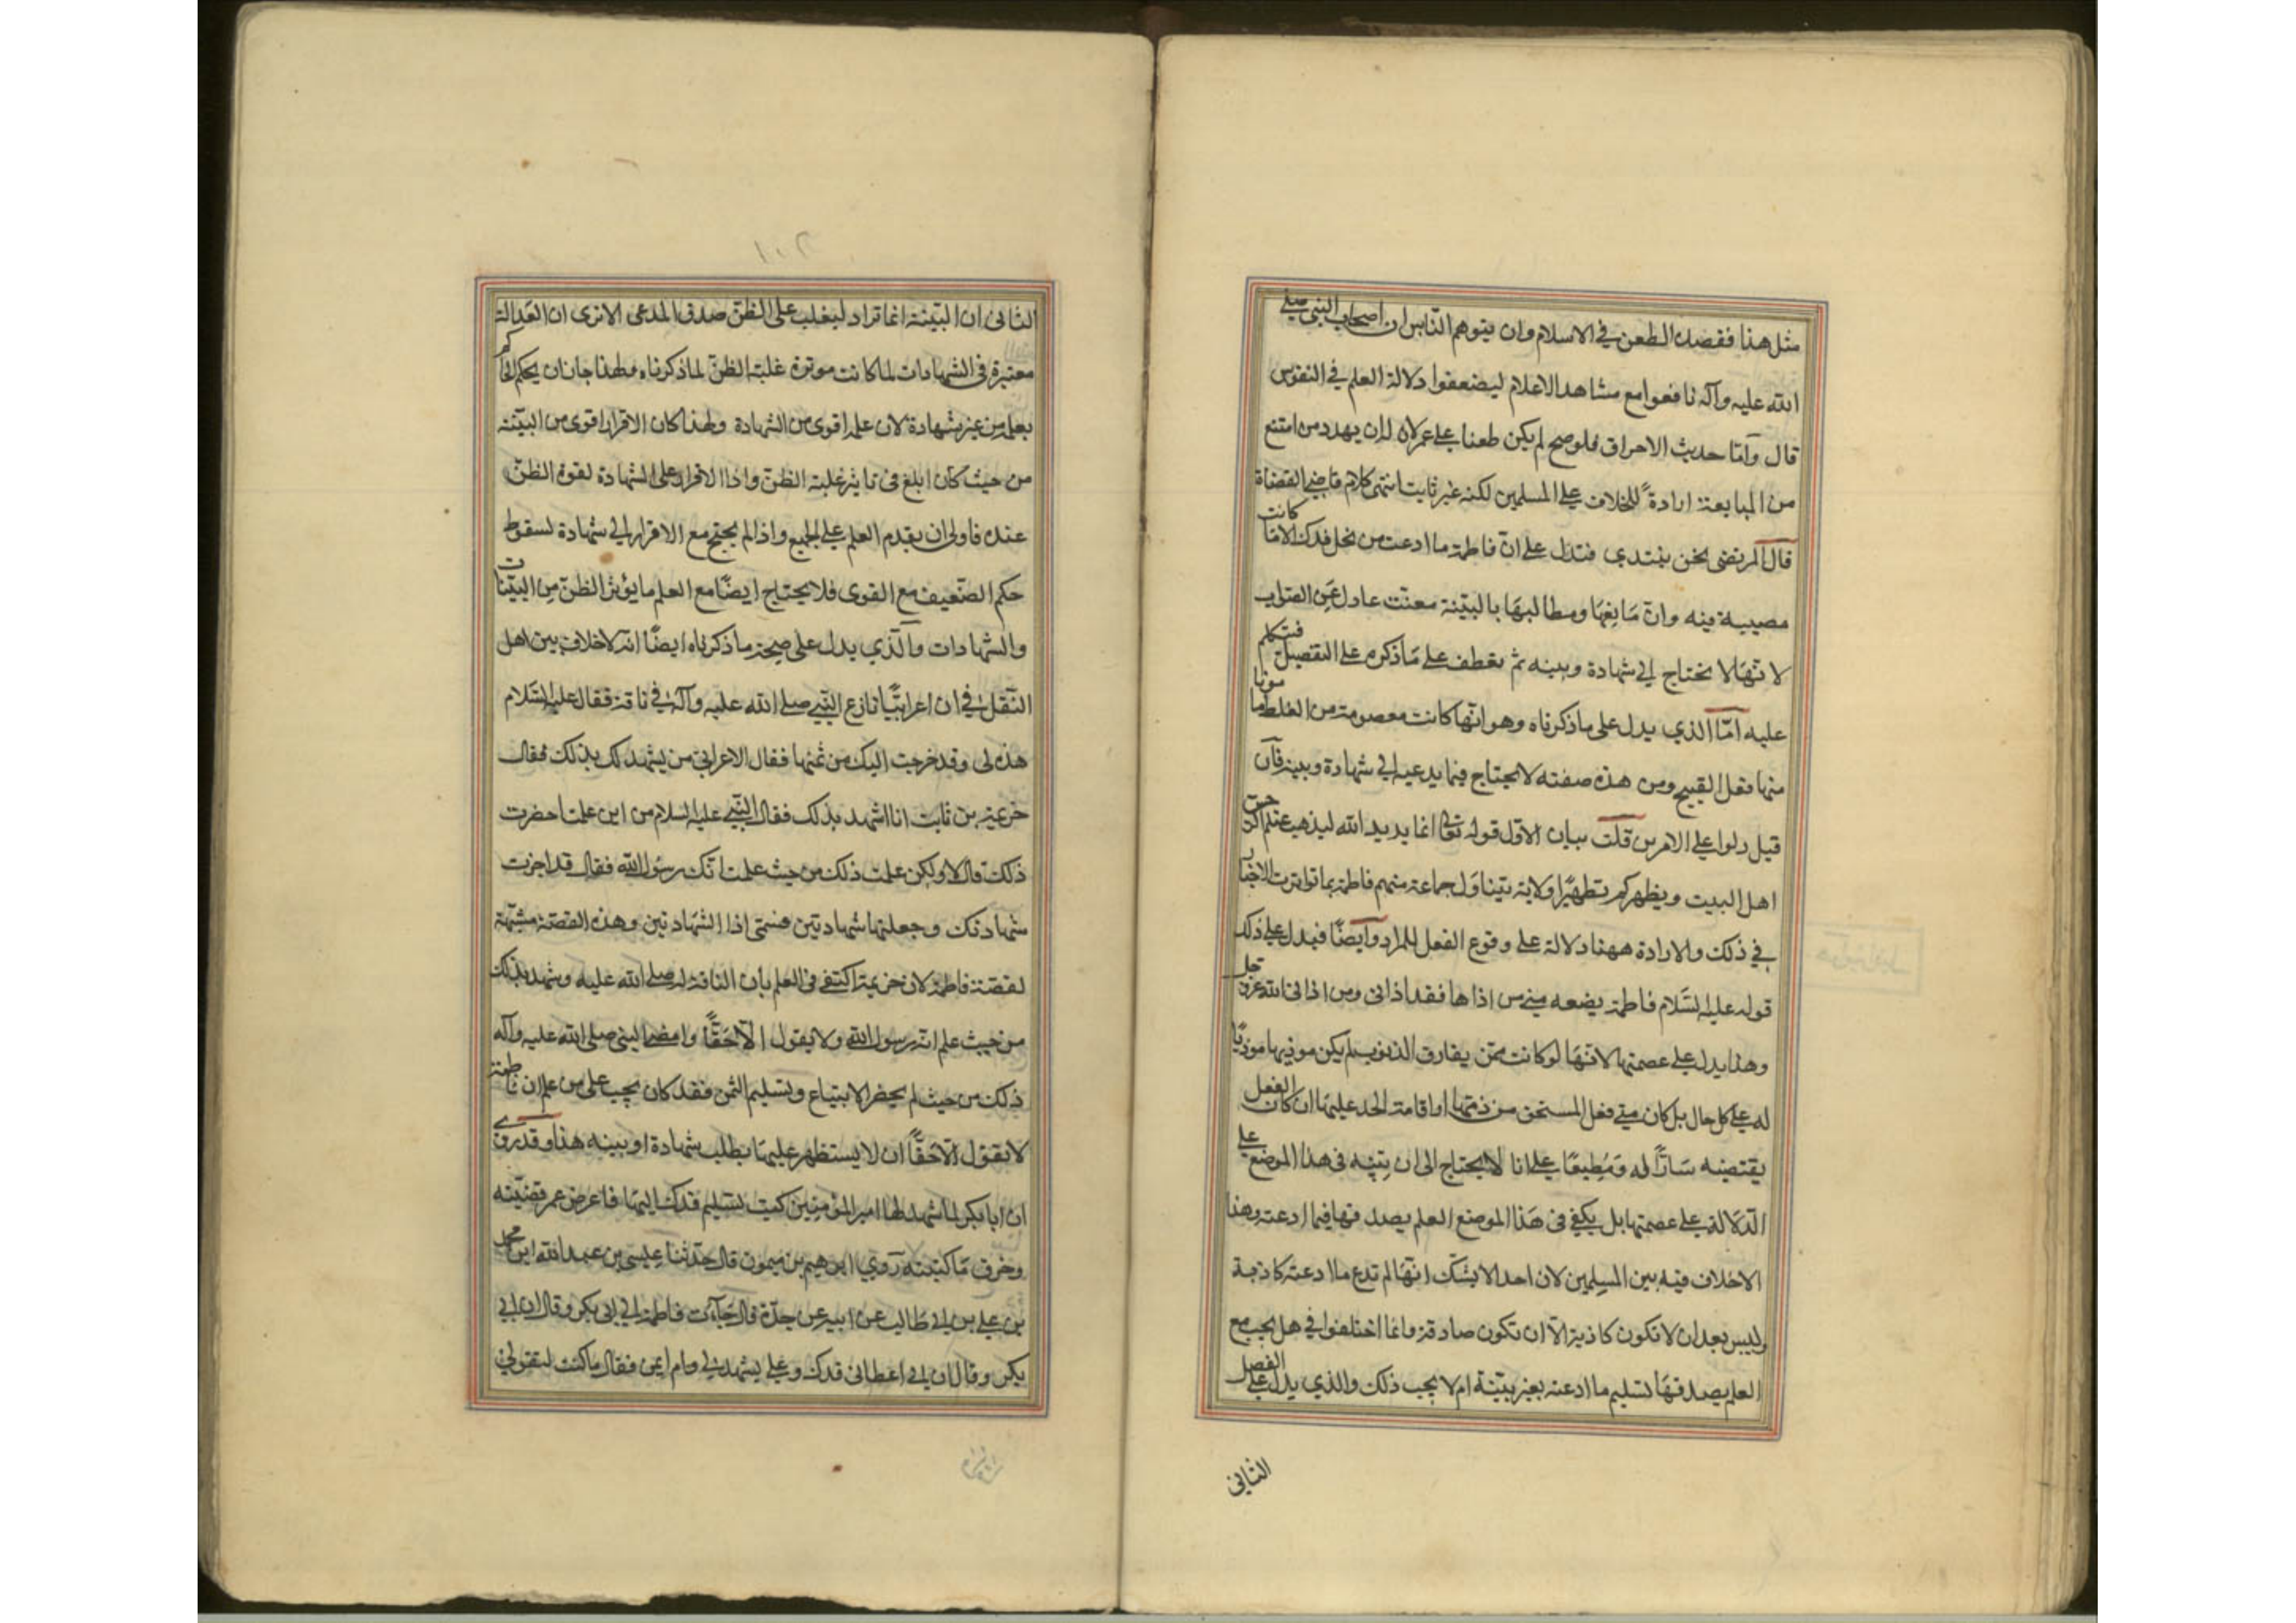 مثل هذا فقصده الطعن في الاسلام وان يتوهم الناس ان اصحاب النبي صلى
الله عليه وآله نافعوا مع مشاهد الاعلام ليضعفوا دلالة العلم في النفوس
قال وامّا حديث الاحراق فلو صح لم يكن طعنا على عمر لان له ان يهدد من امتنع
من المبايعة ارادةً للخلاف على المسلمين لكنه غير ثابت انتهى كلام قاضي القضاة
قال المرتضى نحن نبتدي فندل على انّ فاطمة ما ادعت من نحل فدك الا ما كانت
مصيبة فيه وانّ مَانِعَهَا ومطالبهَا بالبيّنة متعنّت عادل عَن الصّواب
لا نّهَا لا تحتاج الى شهادة وبينه ثم نعطف على مَا ذكره على التفصيل فنتكلم
عليه امّا الذي يدل على ما ذكرناه وهو انّها كانت معصومة من الغلط مأمونا
منها فعل القبيح ومن هذه صفته لا يحتاج فيما يدعيه الى شهادة وبينه فان
قيل دلوا على الامرين قلت بيان الاوّل قوله تعالى انما يريد الله ليذهب عنكم الرجس
اهل البيت ويطهركم تطهيرًا ولاية يتناوَل جماعة منهم فاطمة بما تواترت الاخبار
في ذلك والارادة ههنا دلالة على وقوع الفعل للمراد وايضًا فيدل على ذلك
قوله عليه السَّلام فاطمة بضعه مني من اذاها فقد اذاني ومن اذاني الله عز وجل
وهذا يدل على عصمتها لانّهَا لو كانت ممّن يقارف الذنوب لم يكن موذيها موذيًا
له على كل حال بل كان متى فعل المستحق من ذمّها او اقامة الحد عليهَا ان كان الفعل
يقتضيه سَارًّا له وَمُطيعًا على انا لا نحتاج الى ان نبيّنه في هذا الموضع على
الدّلالة على عصمتها بل يكفي في هَذا الموضع العلم بصدقها فيما ادعته وهذا
لاخلاف فيه بين المسلِمين لان احدا لا يشكّ انهَا لم تدع ما ادعته كاذبة
وليس بعد ان لا تكون كاذبة الّا ان تكون صادقة وانما اختلفوا في هل يجب مع
العلم بصدقهَا تسليم ما ادعته بغير بيّنة ام لا يجب ذلك والذي يدل على الفصل
الثاني
١٠٢
الثاني ان البيّنة انما تراد ليغلب على الظنّ صدق المدعى الا ترى ان العَدالة
معتبرة في الشهادات لما كانت موثرة غلبة الظنّ لما ذكرناه ولهذا جاز ان يحكم الحاكم
بعلمه من غير شهادة لان علمه اقوى من الشهادة ولهذا كان الاقرار اقوى من البيّنة
من حيث كان ابلغ في تاثير غلبة الظنّ واذا الاقرار على الشهادة لقوة الظنّ
عنده فاولى ان يقدم العلم على الجميع واذا لم يحتج مع الاقرار الى شهادة لسقوط
حكم الضّعيف مع القوى فلا يحتاج ايضًا مع العلم ما يؤثر الظنّ مِن البيّنات
والشهادات والّذي يدل على صحة ما ذكرناه ايضًا انه لاخلاف بين اهل
النّقل في ان اعرابيًّا نازع النّبي صلى الله عليه وآله في ناقة فقال عليه السَّلام
هذه لى وقد خرجت اليك من ثمنها فقال الاعرابي من يشهد لك بذلك فقال
خزيمة بن ثابت انا اشهد بذلك فقال النّبي عليه السلام من اين علمت احضرت
ذلك قال لا ولكن علمت ذلك من حيث علمت انّك رسول الله فقال قد اجزت
شهادتك وجعلتها شهادتين فسمّى اذا الشهَادتين وهذه القصّة مشبّهة
لقصّة فاطمة لان خزيمة اكتفى في العلم بان الناقة له صلى الله عليه وشهد بذلك
من حيث علم انه رسول الله ولا يقول الّا حَقًّا وامضى النبي صلى الله عليه وآله
ذلك من حيث لم يحضر الابتياع وتسليم الثمن فقد كان يجب على من علم ان فاطمة
لا تقول الّا حَقًّا ان لا يستظهر عليهَا بطلب شهادة او بينه هذا وقد روى
ان ابا بكر لما شهد لها امير المؤمنِين كتب بتسليم فدك اليهَا فاعرض عمر قضيّته
وخرق مَا كتبته رَوي ابرهيم بن ميمون قال حدّثنا عيسى بن عبد الله ابن محمد
بن علي بن ابي طَالب عن ابيه عن جدّه قال جَاءت فاطمة الى ابي بكر وقال ان ابي
بكر وقال ان ابي اعطاني فدك وعلي يشهد لي وام ايمن فقال ما كنت لتقولي